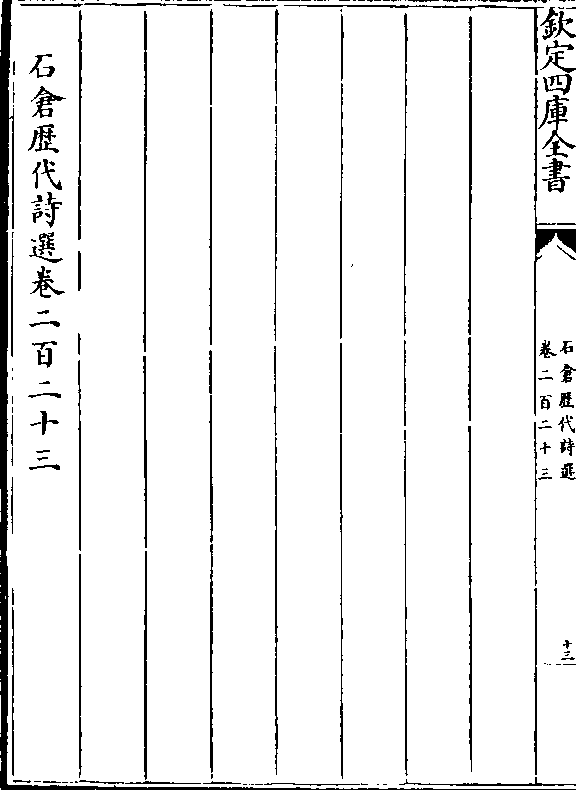 欽定四庫全書
石倉歷代詩選
卷二百二十三
十三
石倉歷代詩選卷二百二十三